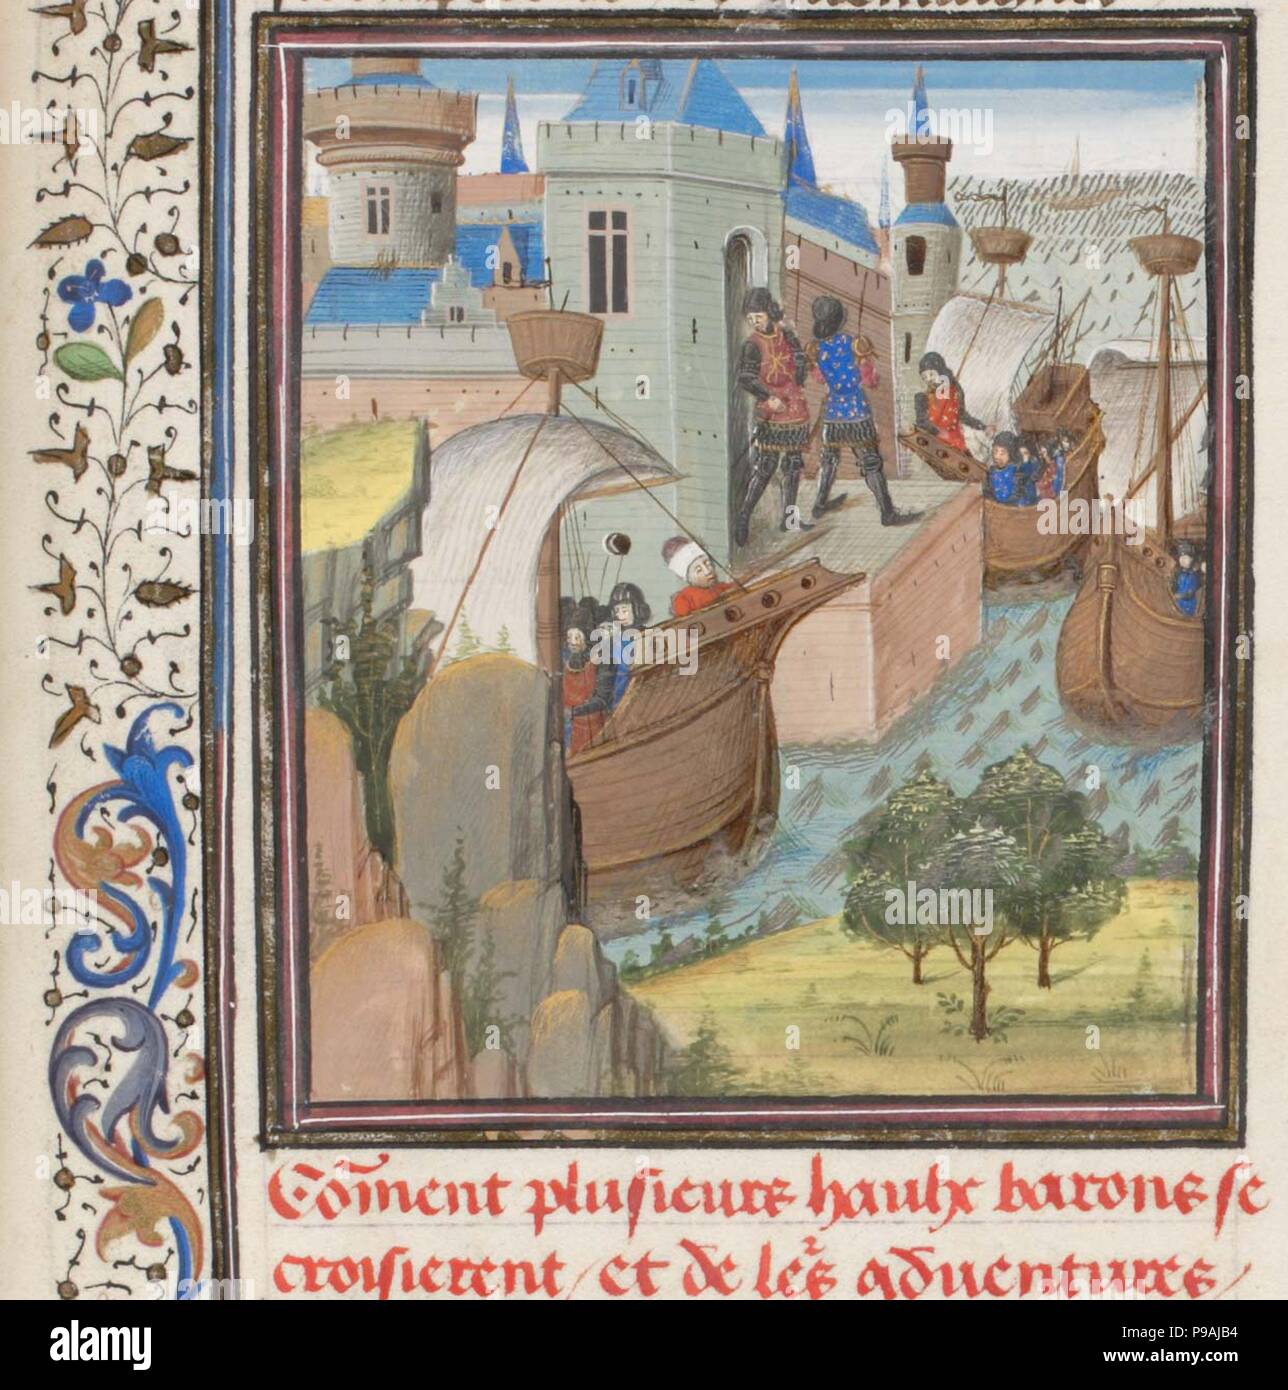 Cõment plusieurs haulx barons se
croisierent / et de leᷣs aduentures /
alamy
Image ID: P9AJB4
www.alamy.com